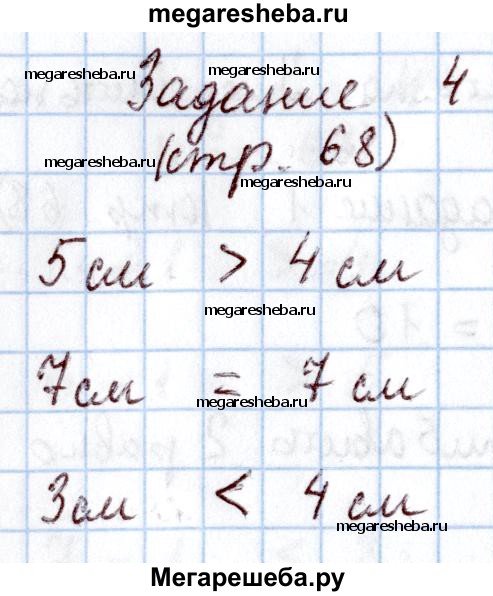 megaresheba.ru
megaresheba.ru megaresheba.ru
Задание 4
megaresheba.ru (стр. 68)
megaresheba.ru
5 см > 4 см
megaresheba.ru
7 см = 7 см
megaresheba.ru
3 см < 4 см
megaresheba.ru
Мегарешеба.ру